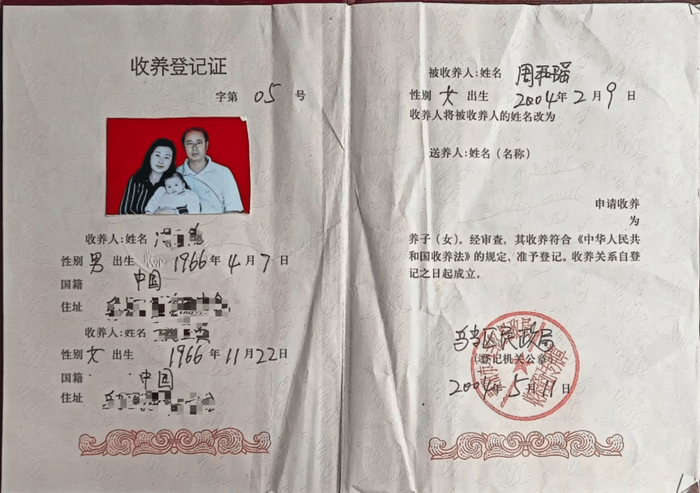 收养登记证
字第 05 号
收养人:姓名
性别 男 出生 1966年4月7日
国籍 中国
住址
收养人:姓名
性别 女 出生 1966年11月22日
国籍 中国
住址
被收养人:姓名 周
性别 女 出生 2004年2月9日
收养人将被收养人的姓名改为
送养人:姓名（名称）
申请收养
为
养子（女）。经审查，其收养符合《中华人民共
和国收养法》的规定，准予登记。收养关系自登
记之日起成立。
乌当区民政局
（登记机关公章）
2004年5月11日